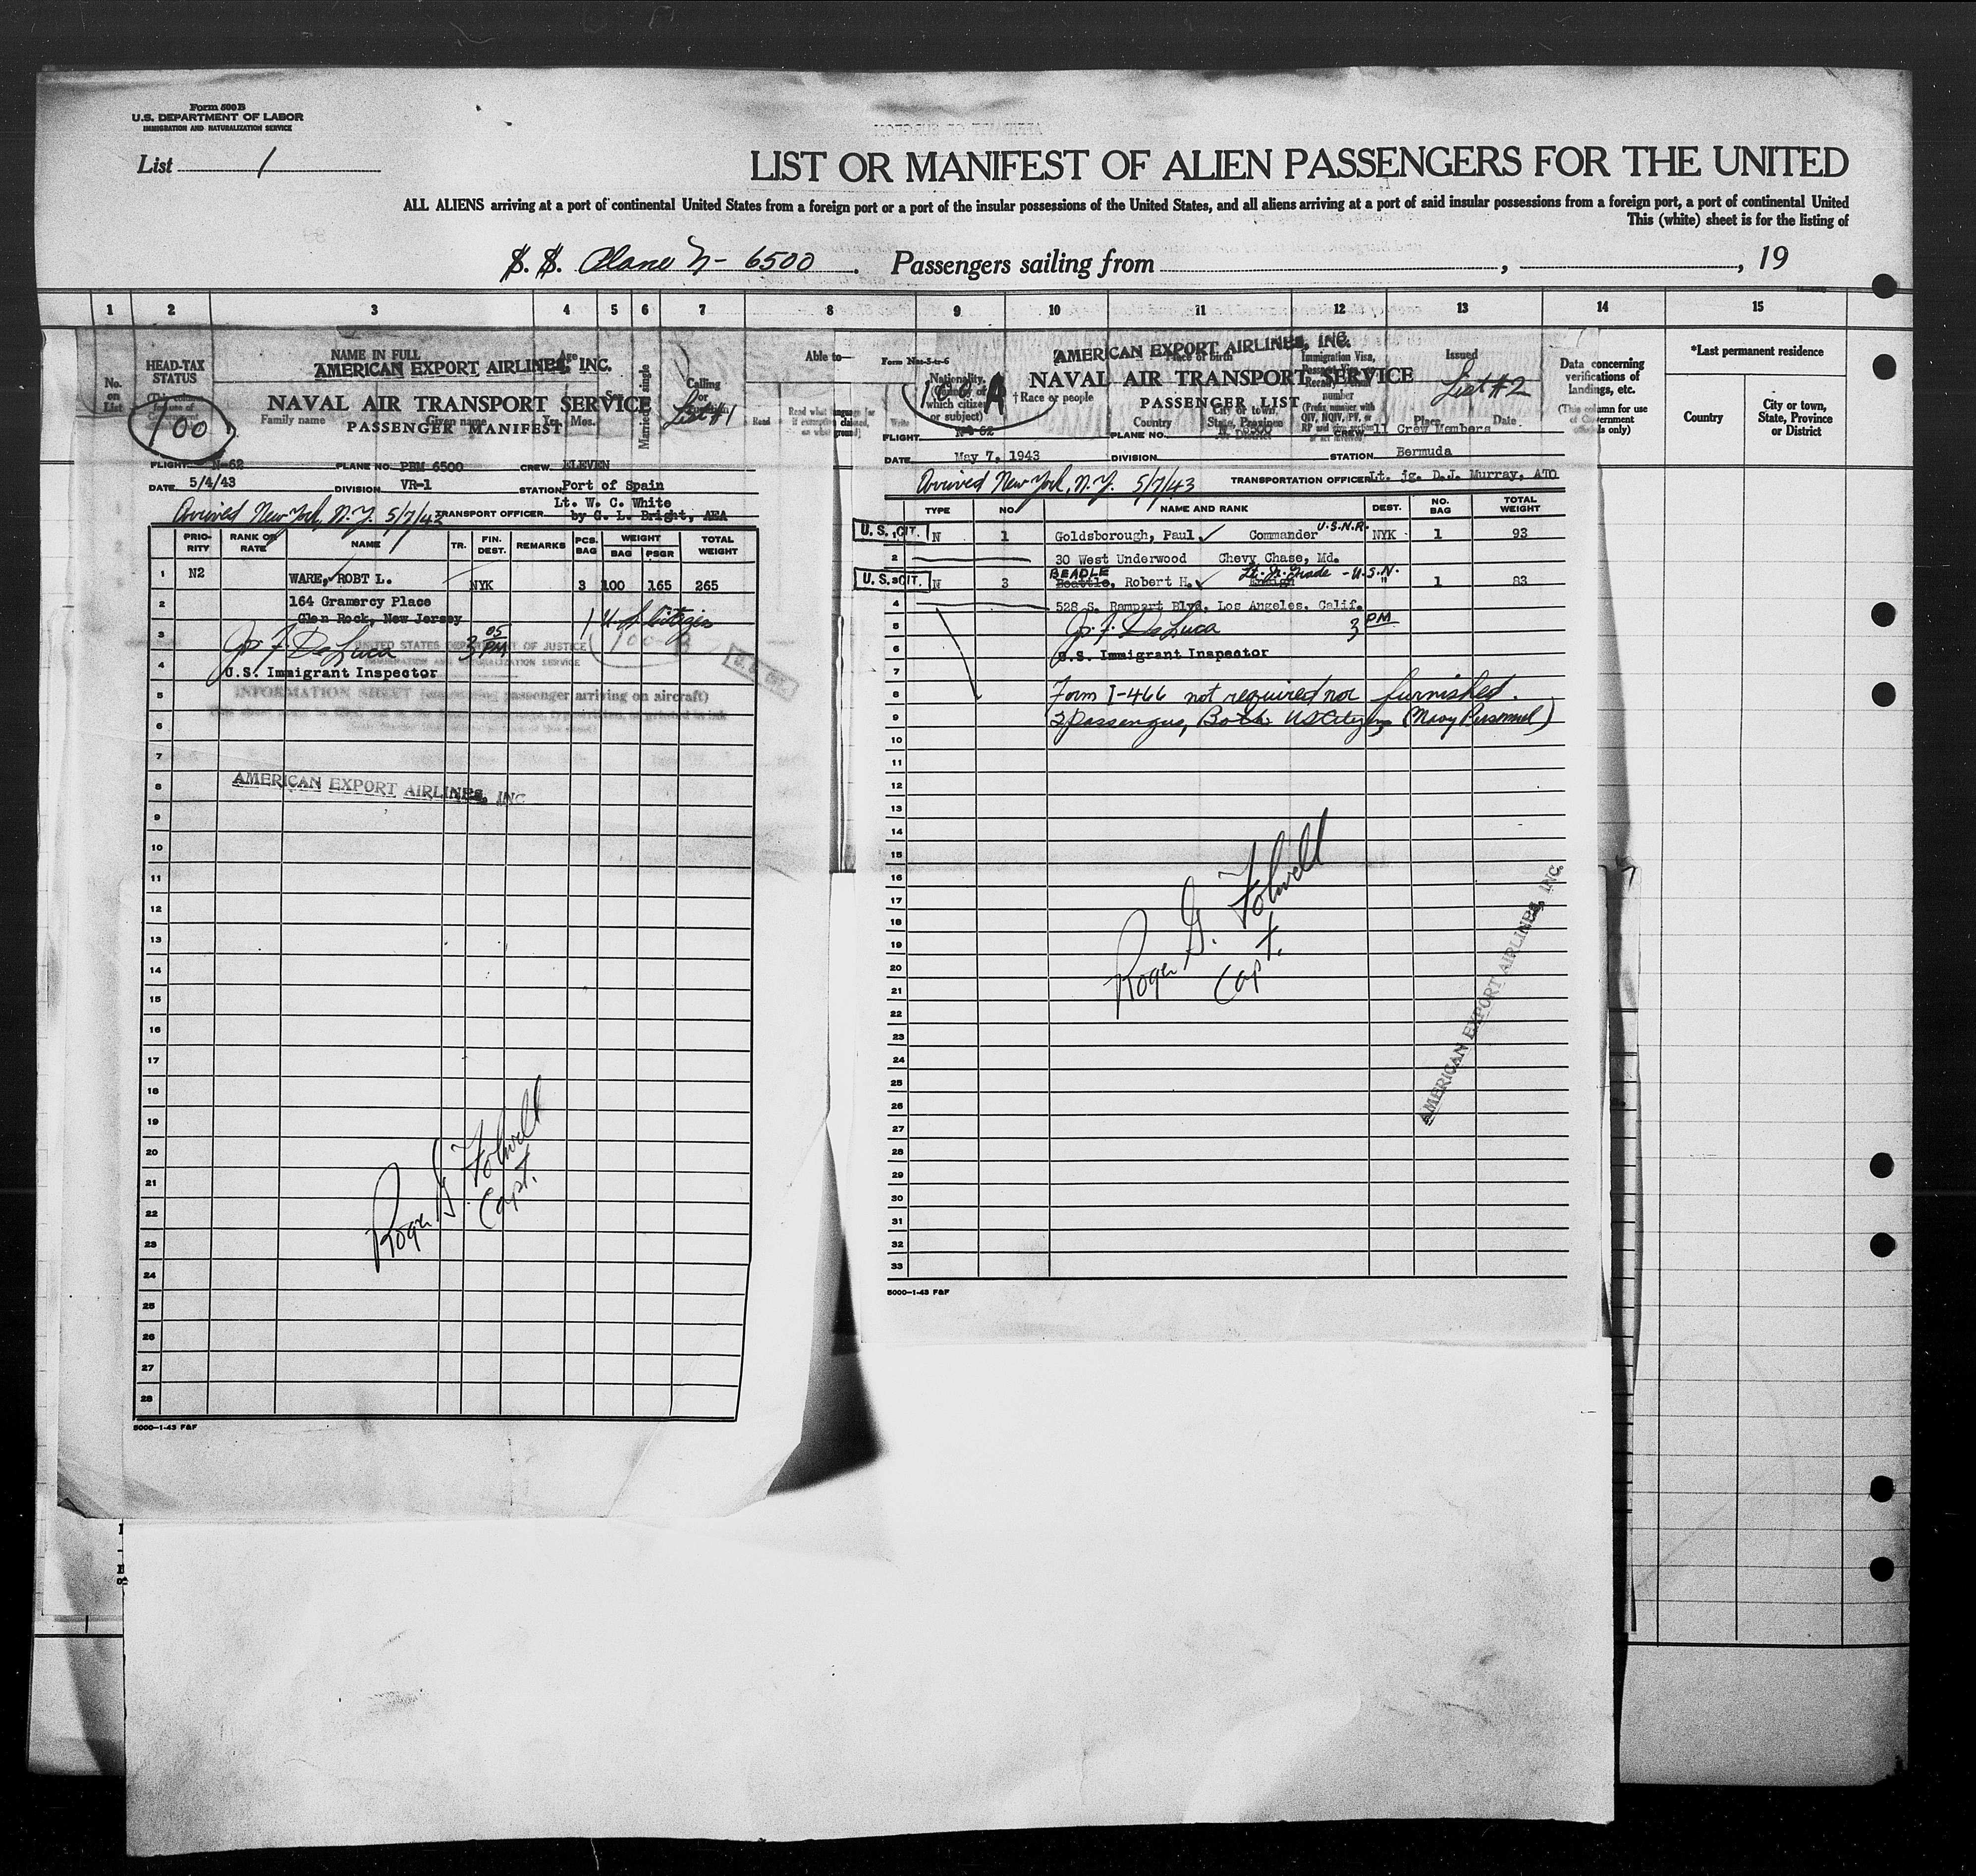 Form 500 B
U.S. DEPARTMENT OF LABOR
IMMIGRATION AND NATURALIZATION SERVICE
List 1
LIST OR MANIFEST OF ALIEN PASSENGERS FOR THE UNITED
ALL ALIENS arriving at a port of continental United States from a foreign port or a port of the insular possessions of the United States, and all aliens arriving at a port of said insular possessions from a foreign port, a port of continental United
This (white) sheet is for the listing of
S. S. Plane N- 6500 . Passengers sailing from , , 19
1 2 3 4 5 6 7 8 9 10 11 12 13 14 15
No. on List
HEAD-TAX STATUS
NAME IN FULL
Family name Given name
Age
Yrs. Mos.
Sex
Married or single
Calling or
Able to—
Read
Read what language
Write
Nationality.
which citizen or subject)
†Race or people
Place of birth
Country
City or town, State, Province
Immigration Visa,
number
Issued
Place Date
Data concerning verifications of landings, etc.
(This column for use of Government officials only)
*Last permanent residence
Country
City or town, State, Province or District
AMERICAN EXPORT AIRLINES, INC.
NAVAL AIR TRANSPORT SERVICE
PASSENGER MANIFEST
List #1
100
FLIGHT N-62 PLANE NO. PBM 6500 CREW ELEVEN
DATE 5/4/43 DIVISION VR-1 STATION Port of Spain
Lt. W. C. White
Arrived New York, N.Y. 5/7/43 TRANSPORT OFFICER by G. L. Bright, AEA
PRIORITY RANK OR RATE NAME TR. FIN. DEST. REMARKS PCS. BAG WEIGHT BAG PSGR TOTAL WEIGHT
1 N2 WARE, ROBT L. NYK 3 100 165 265
2 164 Gramercy Place
Glen Rock, New Jersey 1 U S Citizen
3 Jos F. DeLuca 3 05 PM 100-B
UNITED STATES DEPARTMENT OF JUSTICE
IMMIGRATION AND NATURALIZATION SERVICE
4 U.S. Immigrant Inspector
U.S. CIT.
5 INFORMATION SHEET (concerning passenger arriving on aircraft)
6
7
8 AMERICAN EXPORT AIRLINES, INC
9
10
11
12
13
14
15
16
17
18
19
20
21
22
23
24
25
26
27
28
Roger G. Folwell
Capt.
5000-1-43 F&F
AMERICAN EXPORT AIRLINES, INC.
NAVAL AIR TRANSPORT SERVICE
PASSENGER LIST
List #2
100 A
FLIGHT N-62 PLANE NO. N 6500 CREW 11 Crew Members
DATE May 7, 1943 DIVISION STATION Bermuda
Arrived New York, N.Y. 5/7/43 TRANSPORTATION OFFICER Lt. jg. D.J. Murray, ATO
TYPE NO. NAME AND RANK DEST. NO. BAG TOTAL WEIGHT
U. S. CIT. 1 N 1 Goldsborough, Paul Commander U.S.N.R. NYK 1 93
2 30 West Underwood Chevy Chase, Md.
U. S. CIT. 3 N 3 BEADLE Beattie, Robert H. Lt. Jr. Grade - U.S.N. Ensign " 1 83
4 528 S. Rampart Blvd, Los Angeles, Calif.
5 Jos. F. DeLuca 3 PM
6 U.S. Immigrant Inspector
7
8 Form I-466 not required nor furnished.
9 2 Passengers, Both US Citizens (Navy Personnel)
10
11
12
13
14
15
16
17
18
19
20
21
22
23
24
25
26
27
28
29
30
31
32
33
Roger G. Folwell
Capt.
AMERICAN EXPORT AIRLINES, INC.
5000-1-43 F&F